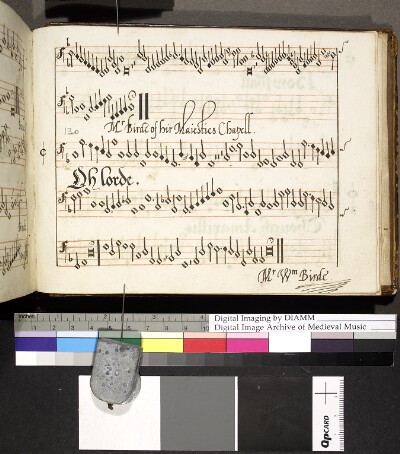 Mr Birde of hir Maiesties Chapell.
130
Oh lorde.
Mr Wm Birde
inches 1 2
Digital Imaging by DIAMM
Digital Image Archive of Medieval Music
QPCARD